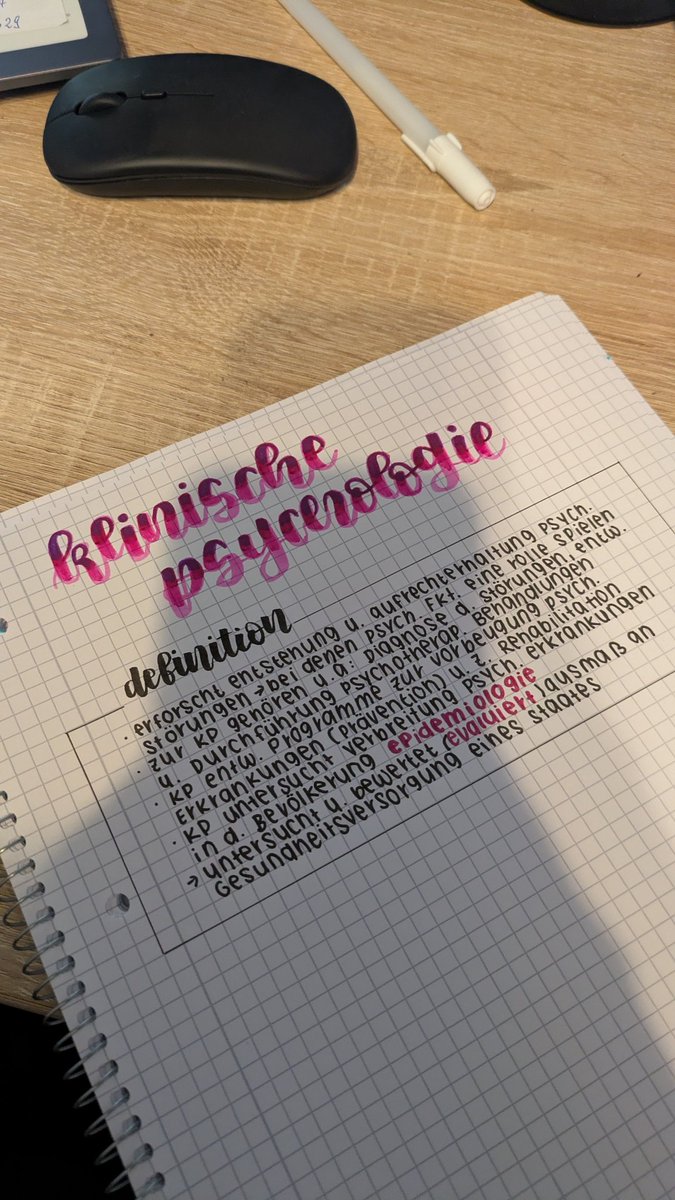 klinische
psycerologie
definition
· erforscht entstehung u. aufrechterhaltung psych.
störungen → bei denen psych. Fkt. eine rolle spielen
· zur KP gehören u.a: Diagnose d. störungen, entw.
u. Durchführung psychotherap. Behandlungen
· KP entw. Programme zur vorbeugung psych.
Erkrankungen (prävention) u. z. Rehabilitation
· KP untersucht verbreitung psych. erkrankungen
in d. Bevölkerung epidemiologie
→ untersucht u. bewertet (evaluiert) ausmaß an
Gesundheitsversorgung eines staates